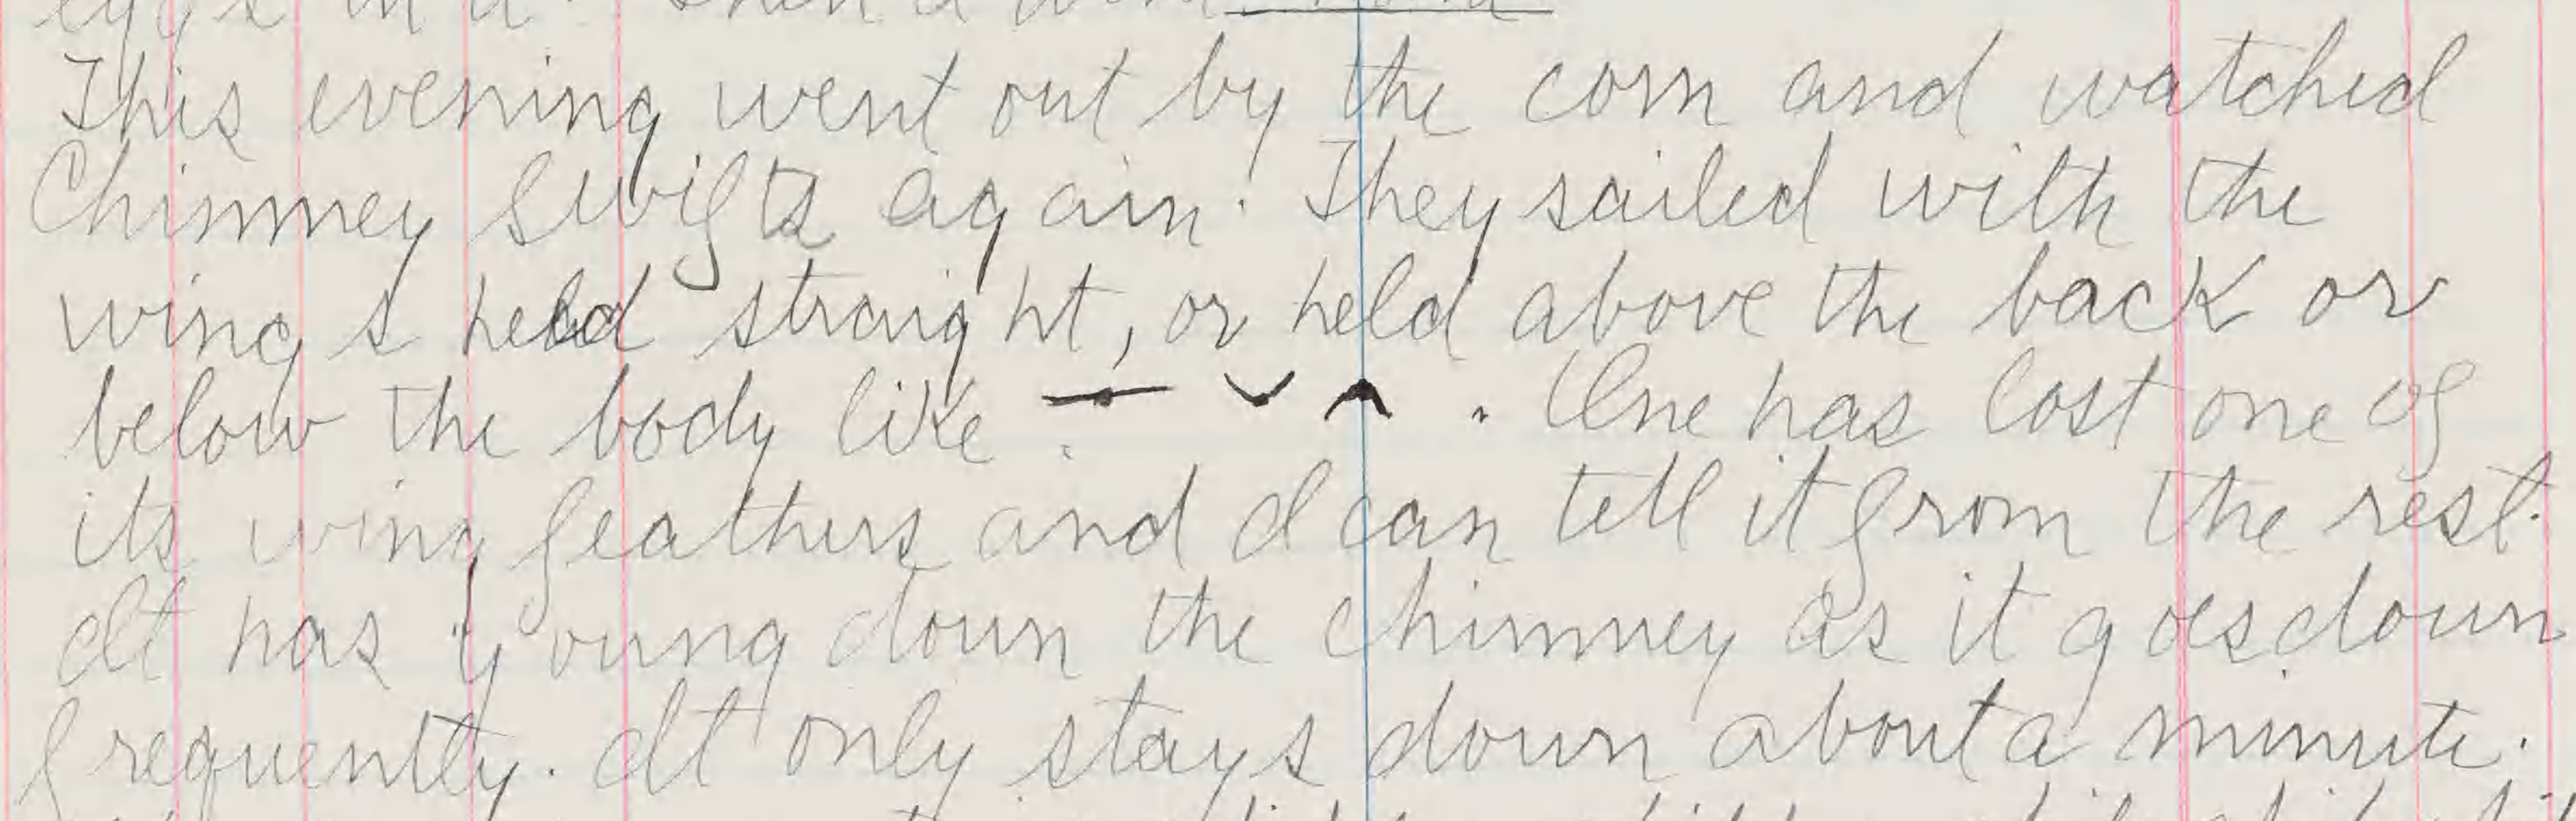 This evening went out by the corn and watched
Chimney Swifts again. They sailed with the
wings held straight, or held above the back or
below the body like . One has lost one of
its wing feathers and I can tell it from the rest.
It has young down the chimney as it goes down
frequently. It only stays down about a minute.